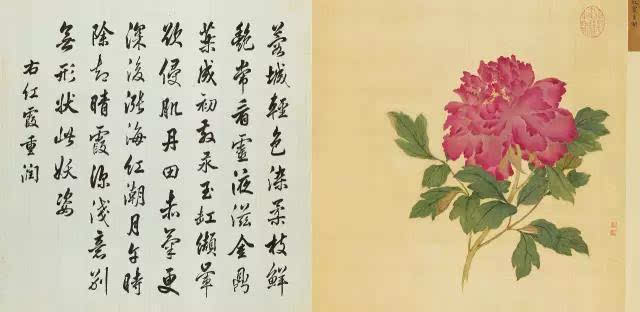 蓉城輕色染柔枝鮮
艷常看靈液滋金鼎
藥成初散采玉缸纈暈
欲侵肌丹田赤氣更
深後漲海紅潮月午時
除却晴霞深淺意別
無形狀比妖姿
右紅霞重潤